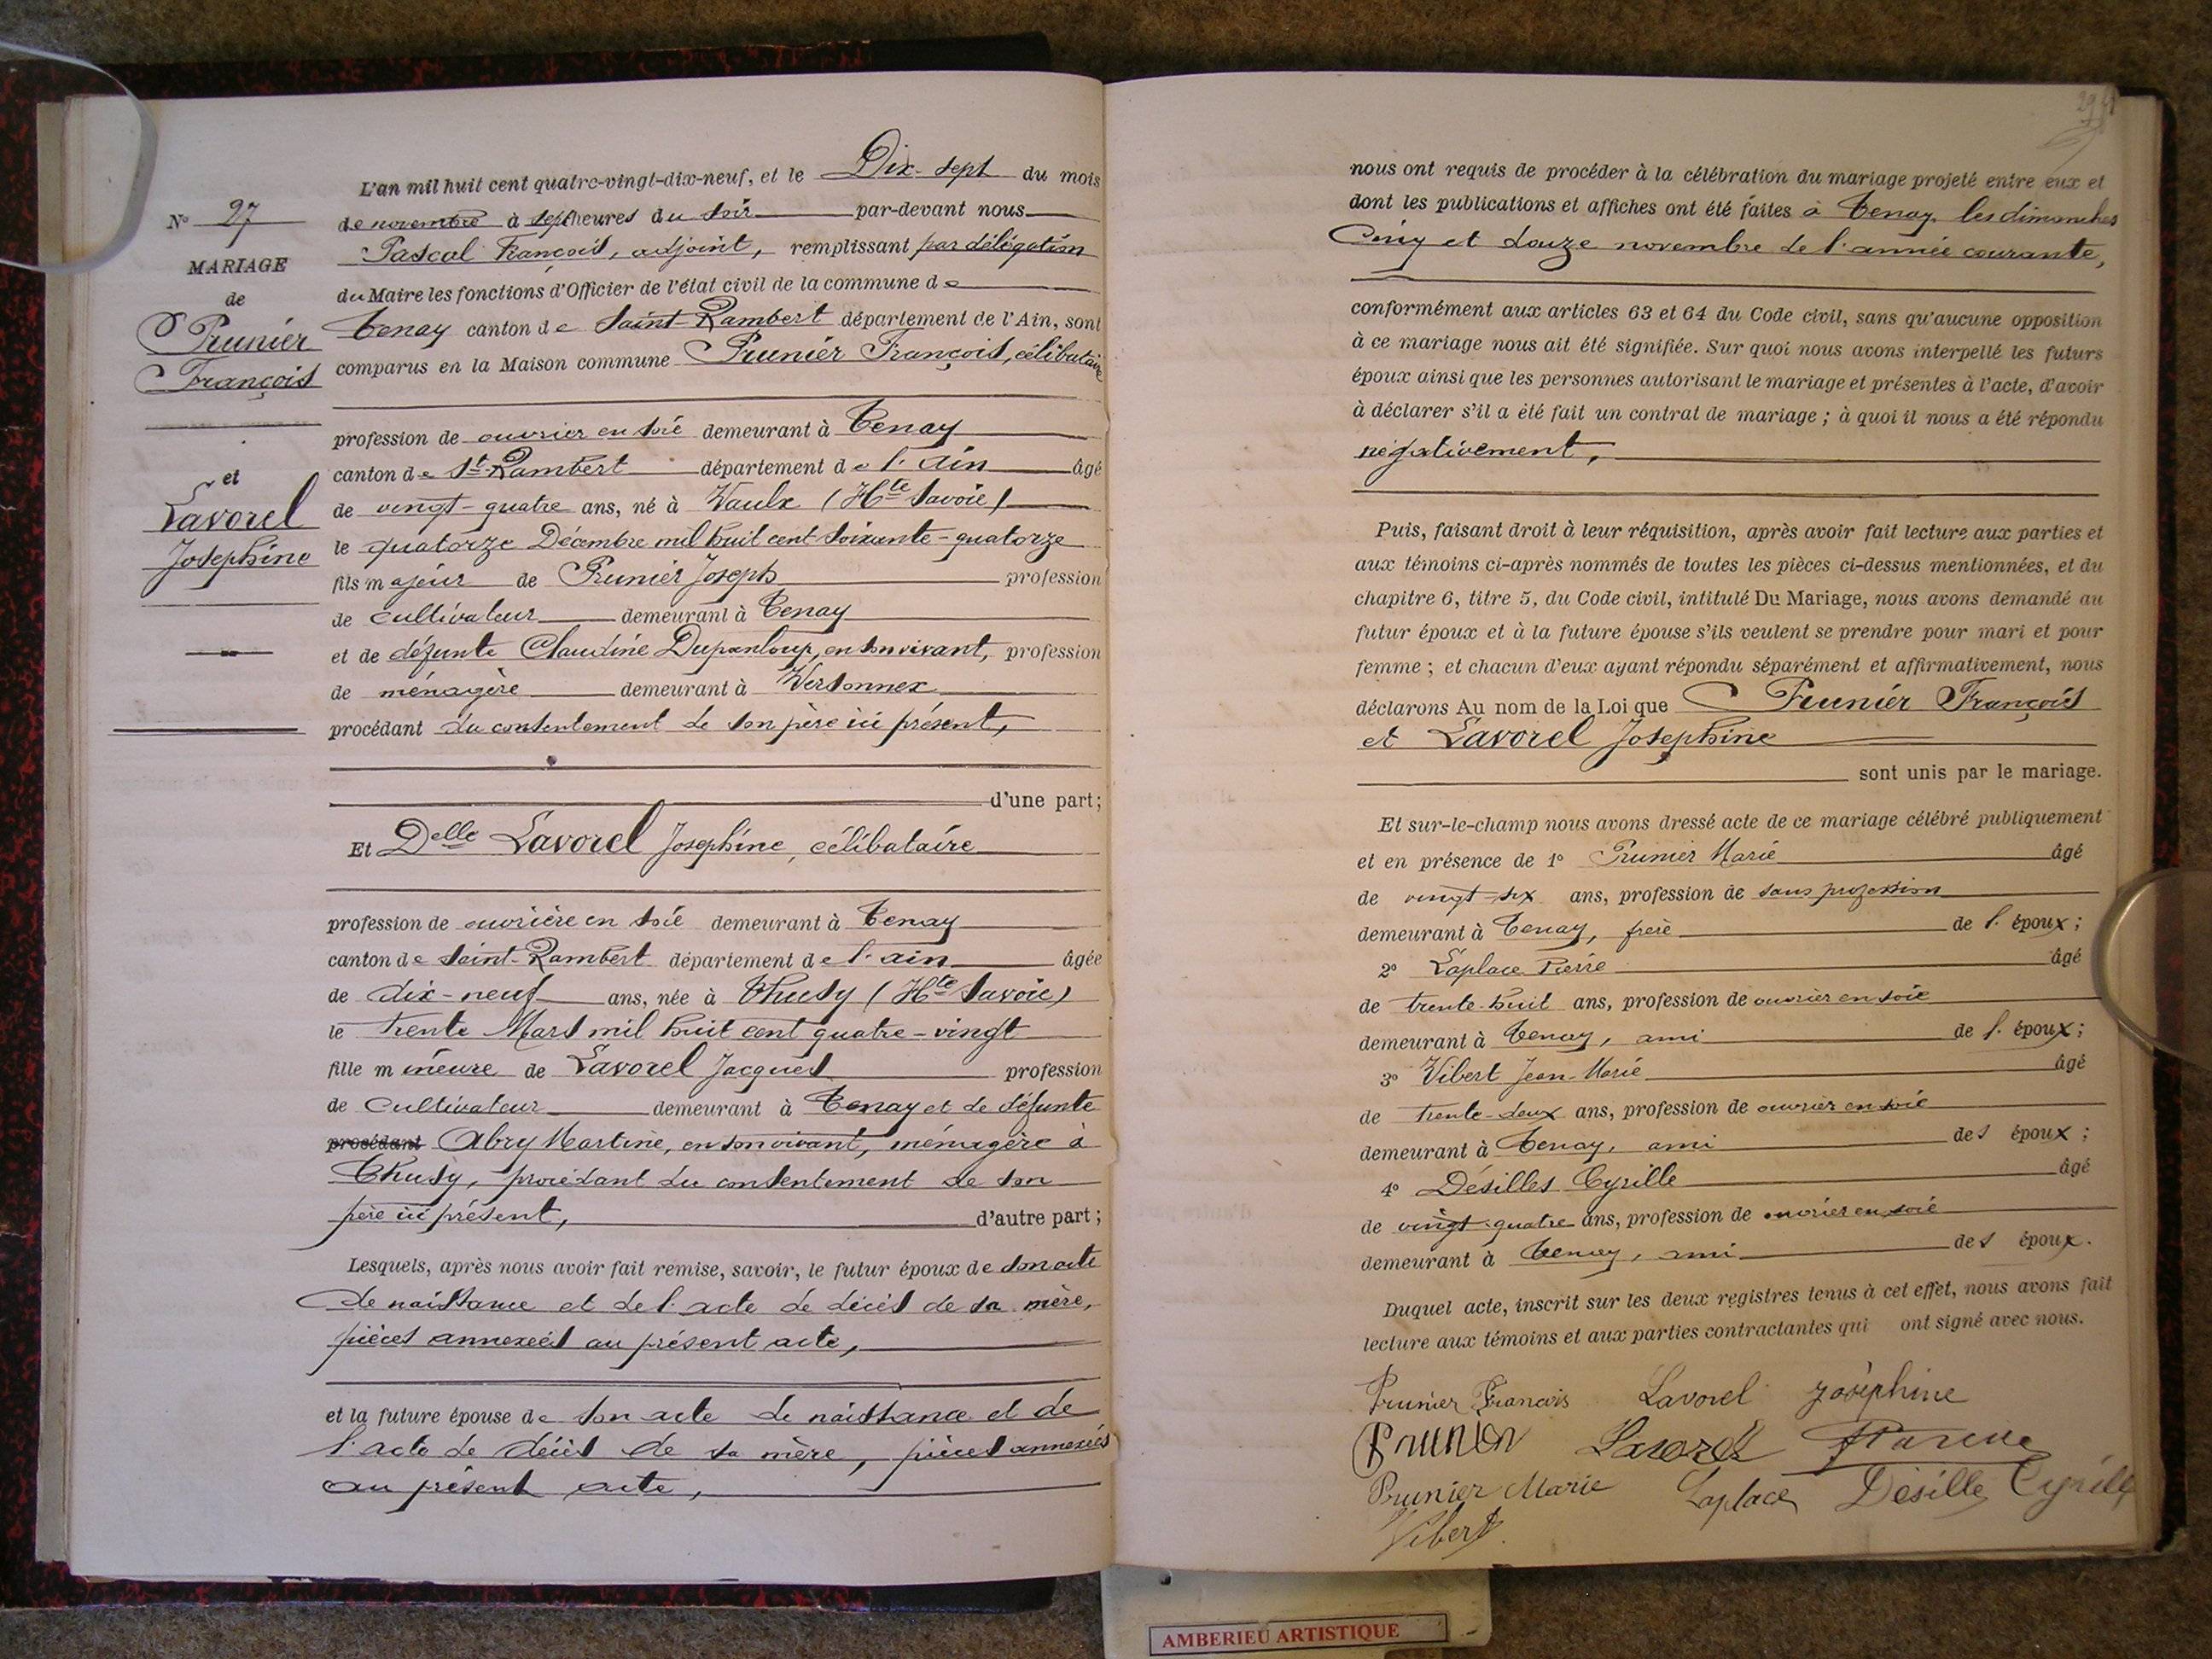 L'an mil huit cent quatre-vingt-dix-neuf, et le Dix-sept du mois
de novembre à sept heures du soir par-devant nous
Pascal François, adjoint, remplissant par délégation
du Maire les fonctions d'Officier de l'état civil de la commune de
Tenay canton de Saint-Rambert département de l'Ain, sont
comparus en la Maison commune Prunier François, célibataire
profession de ouvrier en soie demeurant à Tenay
canton de St-Rambert département de l'Ain âgé
de vingt-quatre ans, né à Vaulx (Hte Savoie)
le quatorze Décembre mil huit cent soixante-quatorze
fils majeur de Prunier Joseph profession
de cultivateur demeurant à Tenay
et de défunte Claudine Dupanloup, en son vivant, profession
de ménagère demeurant à Versonnex
procédant du consentement de son père ici présent,
d'une part;
Et Delle Lavorel Joséphine, célibataire
profession de ouvrière en soie demeurant à Tenay
canton de Saint-Rambert département de l'ain âgée
de dix-neuf ans, née à Thusy (Hte Savoie)
le trente Mars mil huit cent quatre-vingt
fille mineure de Lavorel Jacques profession
de Cultivateur demeurant à Tenay et de défunte
procédant Abry Martine, en son vivant, ménagère à
Thusy, procédant du consentement de son
père ici présent, d'autre part;
Lesquels, après nous avoir fait remise, savoir, le futur époux de son acte
de naissance et de l'acte de décès de sa mère,
pièces annexées au présent acte,
et la future épouse de son acte de naissance et de
l'acte de décès de sa mère, pièces annexées
au présent acte,
No 27
MARIAGE
de
Prunier
François
et
Lavorel
Josephine
nous ont requis de procéder à la célébration du mariage projeté entre eux et
dont les publications et affiches ont été faites à Tenay, les dimanches
Cinq et douze novembre de l'année courante,
conformément aux articles 63 et 64 du Code civil, sans qu'aucune opposition
à ce mariage nous ait été signifiée. Sur quoi nous avons interpellé les futurs
époux ainsi que les personnes autorisant le mariage et présentes à l'acte, d'avoir
à déclarer s'il a été fait un contrat de mariage; à quoi il nous a été répondu
négativement,
Puis, faisant droit à leur réquisition, après avoir fait lecture aux parties et
aux témoins ci-après nommés de toutes les pièces ci-dessus mentionnées, et du
chapitre 6, titre 5, du Code civil, intitulé Du Mariage, nous avons demandé au
futur époux et à la future épouse s'ils veulent se prendre pour mari et pour
femme; et chacun d'eux ayant répondu séparément et affirmativement, nous
déclarons Au nom de la Loi que Prunier François
et Lavorel Josephine
sont unis par le mariage.
Et sur-le-champ nous avons dressé acte de ce mariage célébré publiquement
et en présence de 1° Prunier Marie âgé
de vingt-six ans, profession de sans profession
demeurant à Tenay, frère de l'époux;
2° Laplace Pierre âgé
de trente-huit ans, profession de ouvrier en soie
demeurant à Tenay, ami de l'époux;
3° Vibert Jean-Marie âgé
de trente-deux ans, profession de ouvrier en soie
demeurant à Tenay, ami des époux;
4° Désilles Cyrille âgé
de vingt-quatre ans, profession de ouvrier en soie
demeurant à Tenay, ami des époux.
Duquel acte, inscrit sur les deux registres tenus à cet effet, nous avons fait
lecture aux témoins et aux parties contractantes qui ont signé avec nous.
Prunier François Lavorel Joséphine
Prunier Lavorel
Prunier Marie Laplace Désille Cyrille
Vibert
AMBERIEU ARTISTIQUE